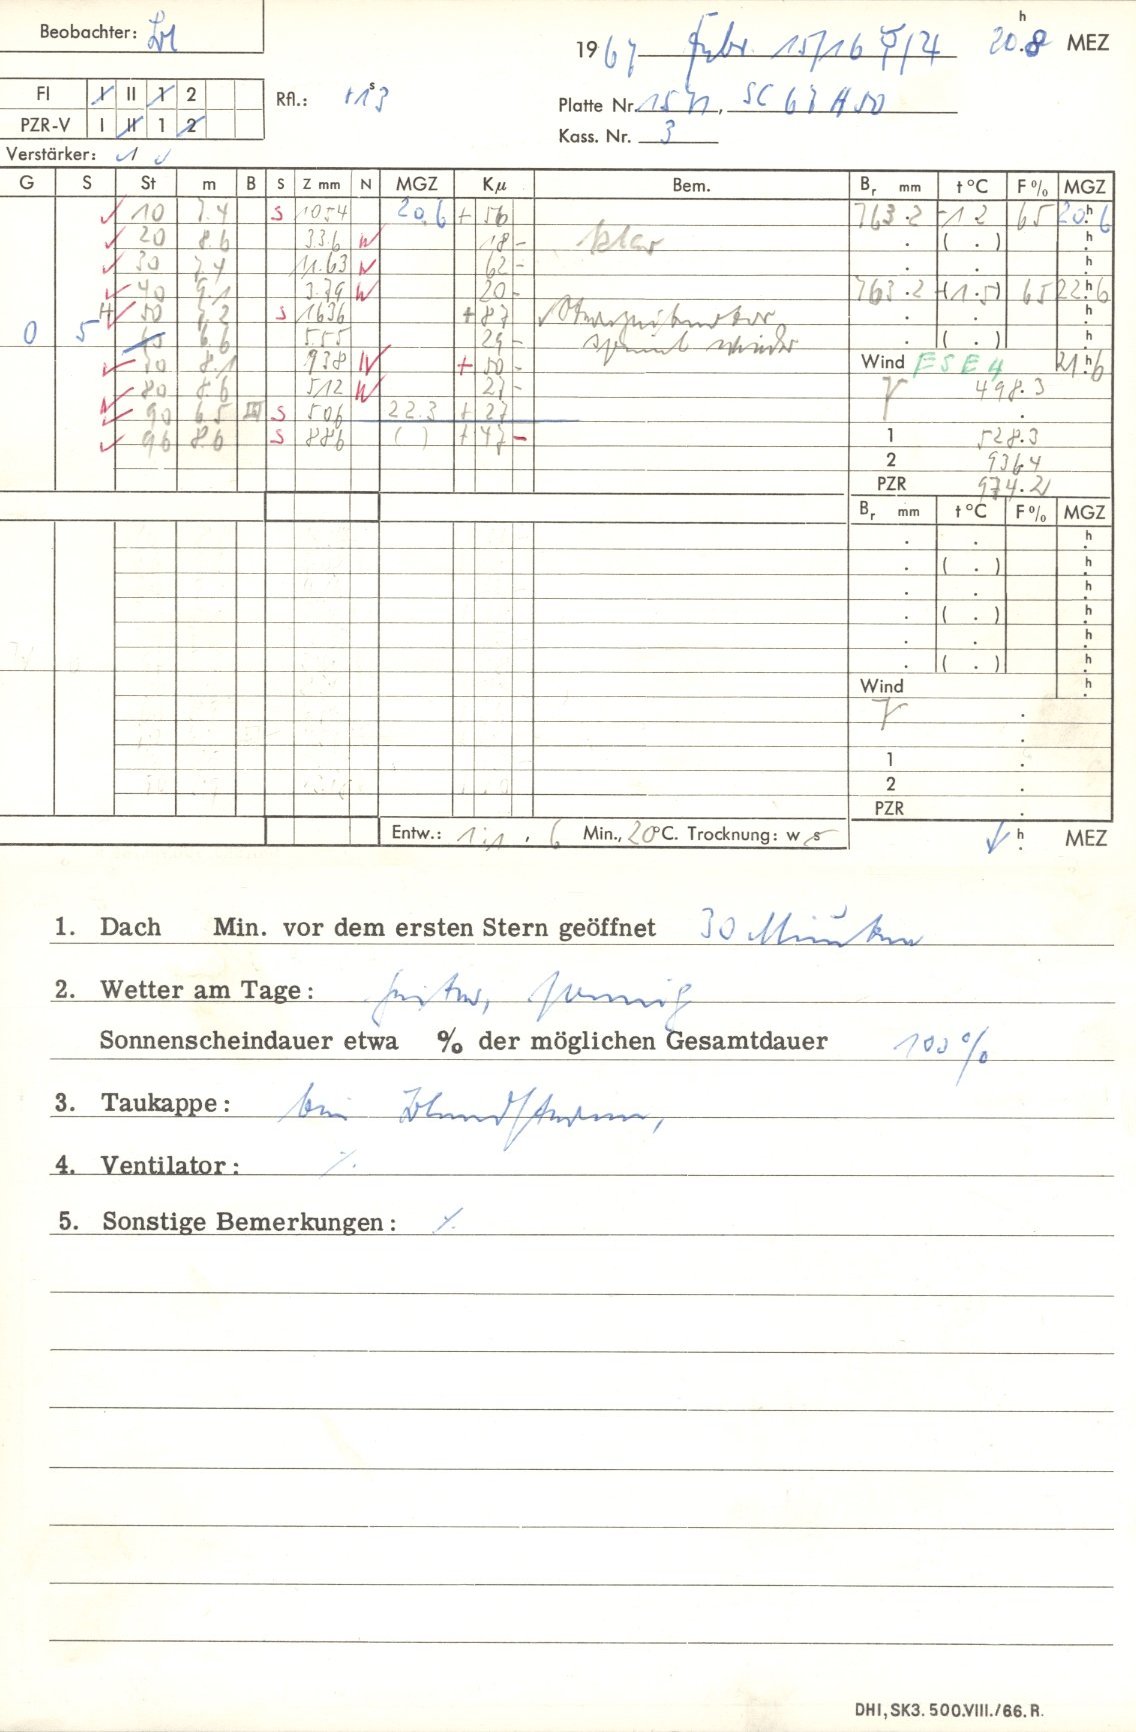 Beobachter:
1967 Febr. 15/16 20.8 h MEZ
FI I II 1 2
Rfl.: +1 s 3
Platte Nr. 1571, SC 67 H 50
PZR-V I II 1 2
Kass. Nr. 3
Verstärker: 1
G S St m B S Z mm N MGZ Kμ Bem. Br mm t °C F % MGZ
10 7.4 S 1054 20.6 + 56 763.2 -1.2 65 20.h6
20 8.6 336 N 18 - klar . ( . ) h
30 7.4 11.63 N 62 - . . h
40 9.1 3.79 N 20 - 763.2 -(1.5) 65 22.h6
H 50 7.2 S 1636 + 87 . . h
0 5 60 6.6 5.55 29 - . ( . ) h
8.1 938 N + 50 - Wind ESE 4 21.h6
80 8.6 512 N 27 - 498.3
90 6.5 III S 506 22.3 + 27 .
96 8.6 S 886 ( ) + 47 - 1 528.3
2 936.4
PZR 974.2
Br mm t °C F % MGZ
. . h
. ( . ) h
. . h
. ( . ) h
. . h
. ( . ) h
Wind h
.
.
1 .
2 .
PZR .
Entw.: 1:1 , 6 Min., 20°C. Trocknung: w s
h MEZ
1. Dach Min. vor dem ersten Stern geöffnet 30 Minuten
2. Wetter am Tage: heiter, sonnig
Sonnenscheindauer etwa % der möglichen Gesamtdauer 100%
3. Taukappe:
4. Ventilator: ·/.
5. Sonstige Bemerkungen: ·/.
DHI, SK3. 500.VIII./66. R.